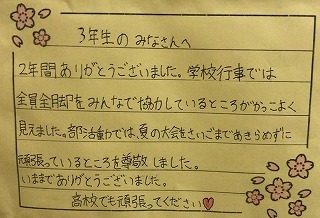 3年生の みなさんへ
2年間ありがとうございました。学校行事では
全員全脚をみんなで協力しているところがかっこよく
見えました。部活動では、夏の大会をさいごまであきらめずに
頑張っているところを尊敬しました。
いままでありがとうございました。
高校でも頑張ってください♥